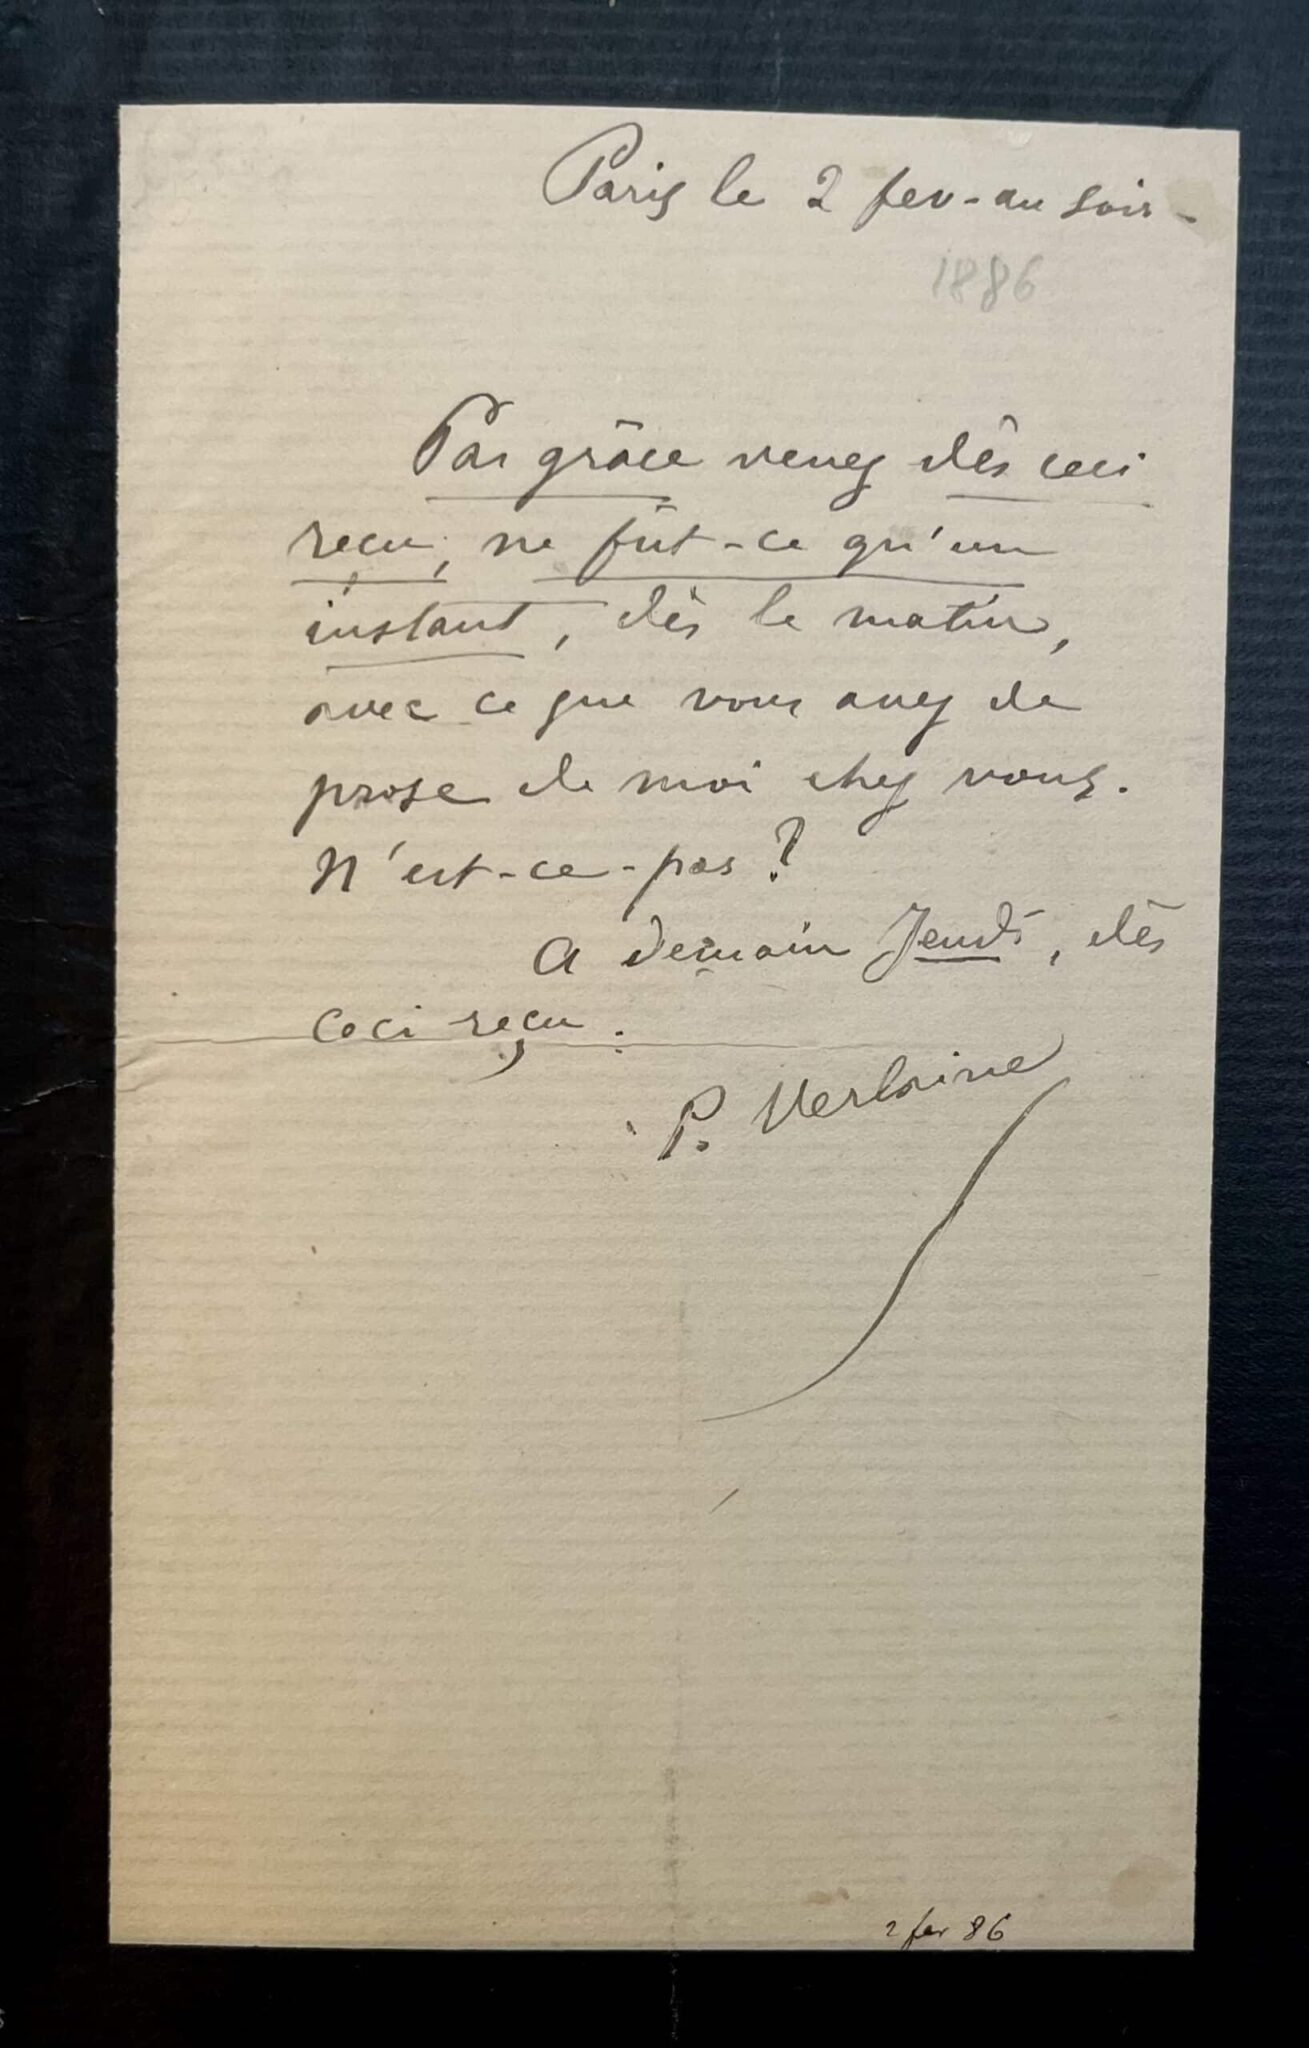 Paris le 2 fev - au soir -
1886
Par grâce venez dès ceci
reçu, ne fût-ce qu'un
instant, dès le matin,
avec ce que vous avez de
prose de moi chez vous.
N'est-ce-pas ?
A demain Jeudi, dès
ceci reçu.
P. Verlaine
2 fev 86